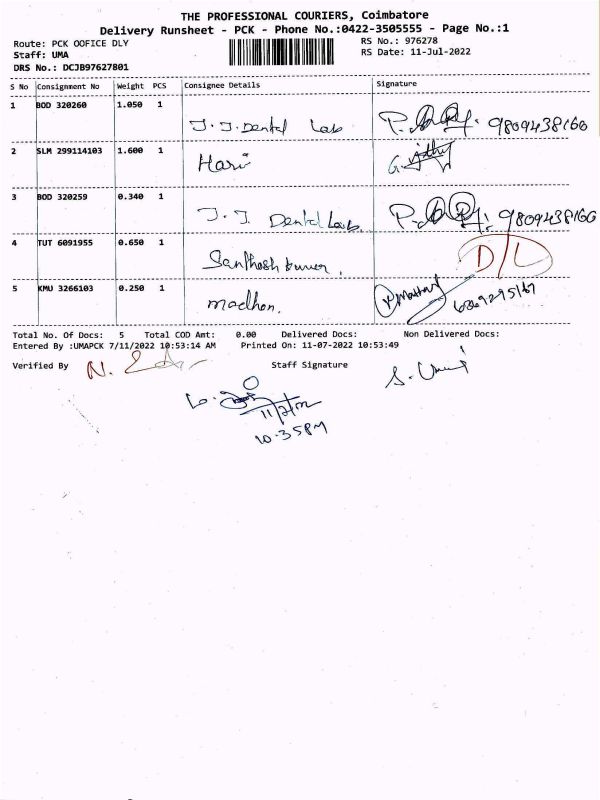 THE PROFESSIONAL COURIERS, Coimbatore
Delivery Runsheet - PCK - Phone No.:0422-3505555 - Page No.:1
Route: PCK OOFICE DLY RS No.: 976278
Staff: UMA RS Date: 11-Jul-2022
DRS No.: DCJB97627801
S No Consignment No Weight PCS Consignee Details Signature
1 BOD 320260 1.050 1
J. J. Dental Lab 9809438166
2 SLM 299114103 1.600 1
Hari
3 BOD 320259 0.340 1
J. J. Dental Lab. 9809438166
4 TUT 6091955 0.650 1 D/L
Santhosh kumar.
5 KMU 3266103 0.250 1
madhan.
Total No. Of Docs: 5 Total COD Amt: 0.00 Delivered Docs: Non Delivered Docs:
Entered By :UMAPCK 7/11/2022 10:53:14 AM Printed On: 11-07-2022 10:53:49
Verified By Staff Signature
10.35PM